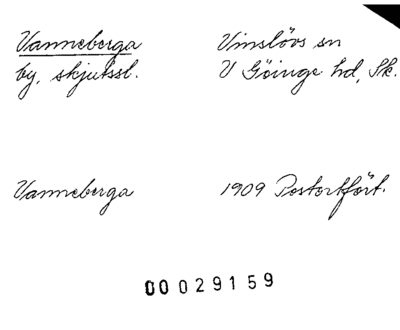 Vanneberga Vinslövs sn
by, skjutsst. V Göinge hd, Sk.
Vanneberga 1909 Postortfört.
00029159